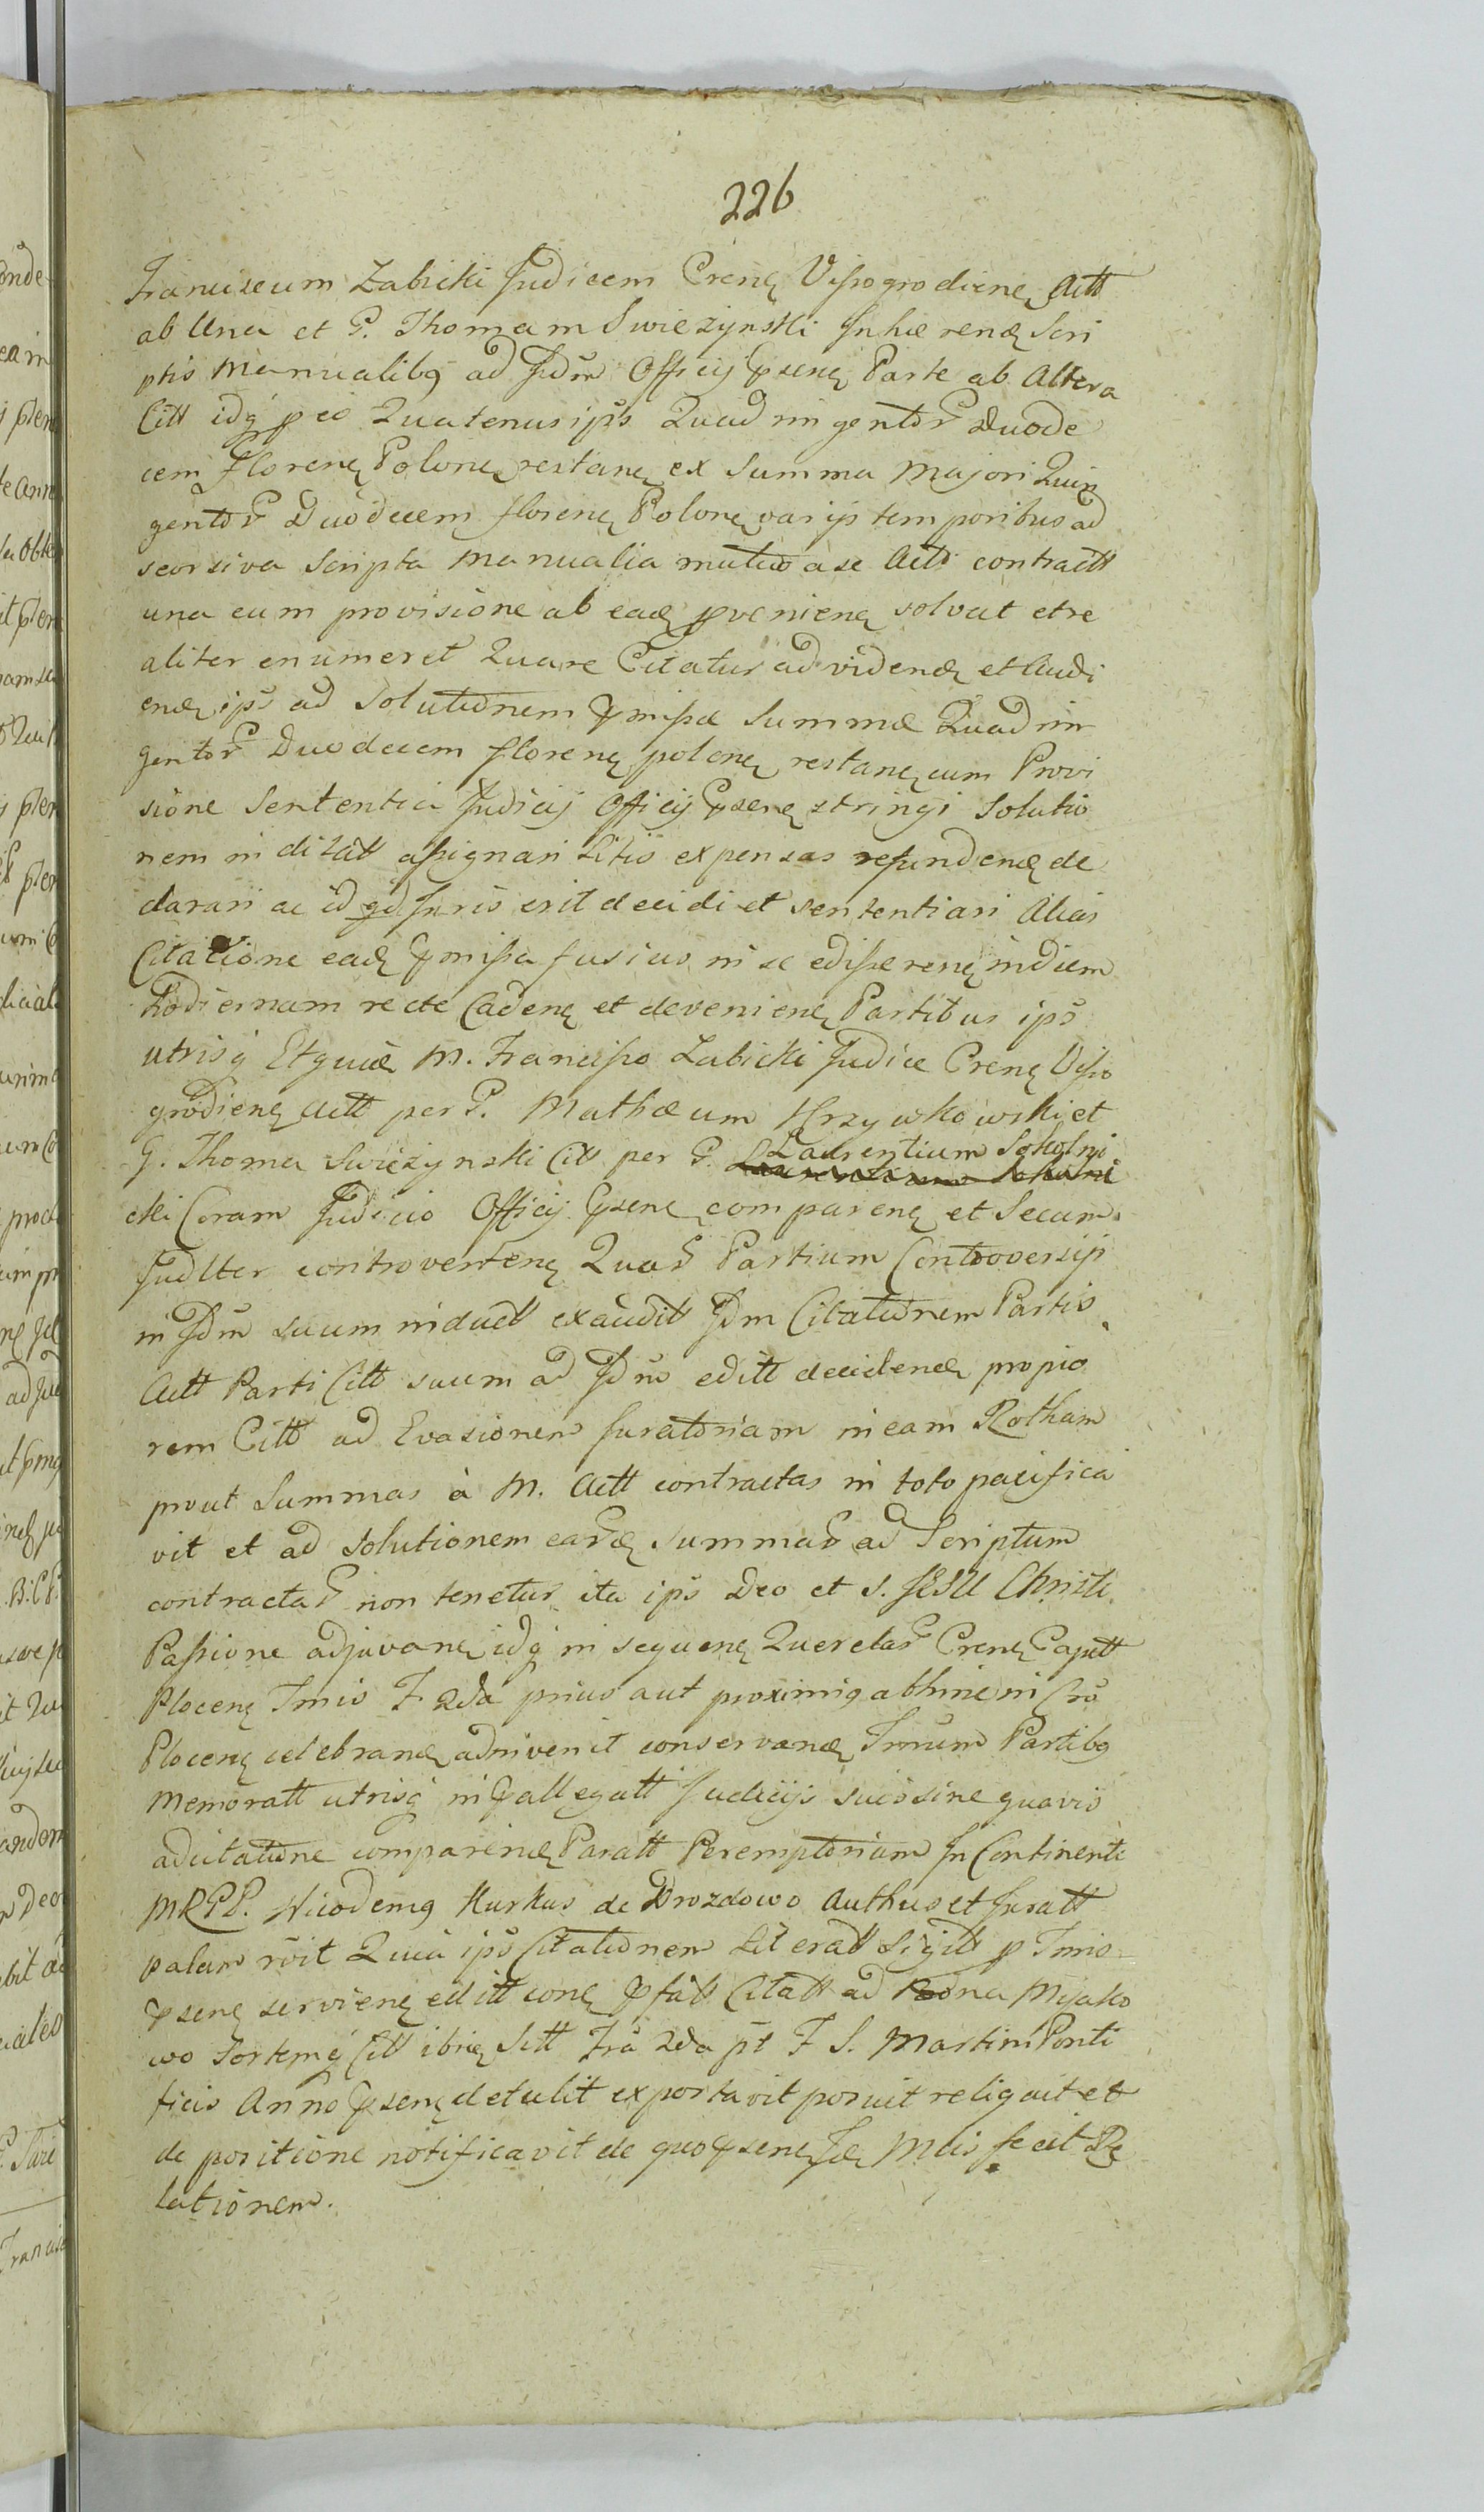 226
Franciscum Zabicki Judicem Crenę Vissogrodienę Actt
ab Una et G. Thomam Swiezynski Inhærenæ Scri
ptis Manualibq ad Jud̃m Officij Ppsenę Parte ab Altera
Citt idq̃ p eo Quatenus ips̃ Quadringentor̃ Duode
cem Florenę Polonę restanę ex Summa Majori Quin
gentor̃ Duodecem florenę Polonę varijs temporibus ad
seorsiva Scripta Manualia mutuo a se Actt contractt
una cum provisione ab eadę pvenienę solvat et re
aliter enumeret Quare Citatur ad videnæ et Audi
enæ ips̃ ad Solutionem pmissæ Summæ Quadrin
gentor̃ Duodecem florenę polonę restanę cum Provi
sione Sententia Judicij Officij Ppsenę stringi Solutio
nem in ditatt assignari Litis expensas refundenę de
clarari ac id qd Juris erit decidi et sententiari Alias
Citatione eadę pmissa fusius in se edisserenę in diem
hodiernam recte Cadenę et devenienę Partibus ips̃
utrisq̃ Etquidę M. Francisso Zabicki Judice Crenę Visso
grodienę Actt per G. Mathæum Krzywkowski et
G. Thoma Swiezynski Citt per G. Laurentium Sokolni
cki Coram Judicio Officij Ppsenę comparenę et Secum
Judlter controvertenę Quar̃ Partium Controversijs
in Jd̃m suum induct̃t exaudit̃t Jd̃m Citationem Partis
Actt Parti Citt suum ad Jd̃m editt decidenæ propio
rem Citt ad Evasionem Juratoriam in eam Rotham
prout Summas à M. Actt contractas in toto pacifica
vit et ad solutionem earæ summar̃ ad Scriptum
contractar̃ non tenetur ita ips̃ Deo et S. JESU Christi
Passione adjuvanę idq̃ in sequenę Querelar̃ Crenę Capitt
Plocenę Tmis F. 2da prius aut proximiq abhinc in Cro
Plocenę celebranæ adinvenit conservanæ Tm̃um Partibq
Memoratt utrisq̃ in pallegatt Judicijs suis sine quavis
adcitatione comparenæ Paratt Peremptorium In Continenti
MRPP. Nicodemq Kurkus de Drozdowo Authus et Juratt
palam r̃vit Quia ips̃ Citationem Literatt Sigitt p Tmis
Ppsenę servienę editt conę pfatt Citatt ad Bona Mijako
wo Sortemq̃ Citt ibidę Sitt Fra 2da p̃t F S. Martini Ponti
ficis Anno Ppsenę detulit exportavit posuit reliquit et
de positione notificavit de quo Ppsenę Jdę Meis fecit Re
lationem.